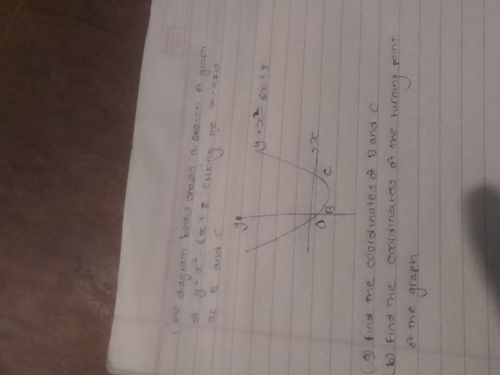 The diagram below shows a sketch of graph
of y = x² - 6x + 8, cutting the x-axis
at B and C
y
y = x² - 6x + 8
x
O
B
C
(a) Find the coordinates of B and C
b) Find the coordinates of the turning point
of the graph